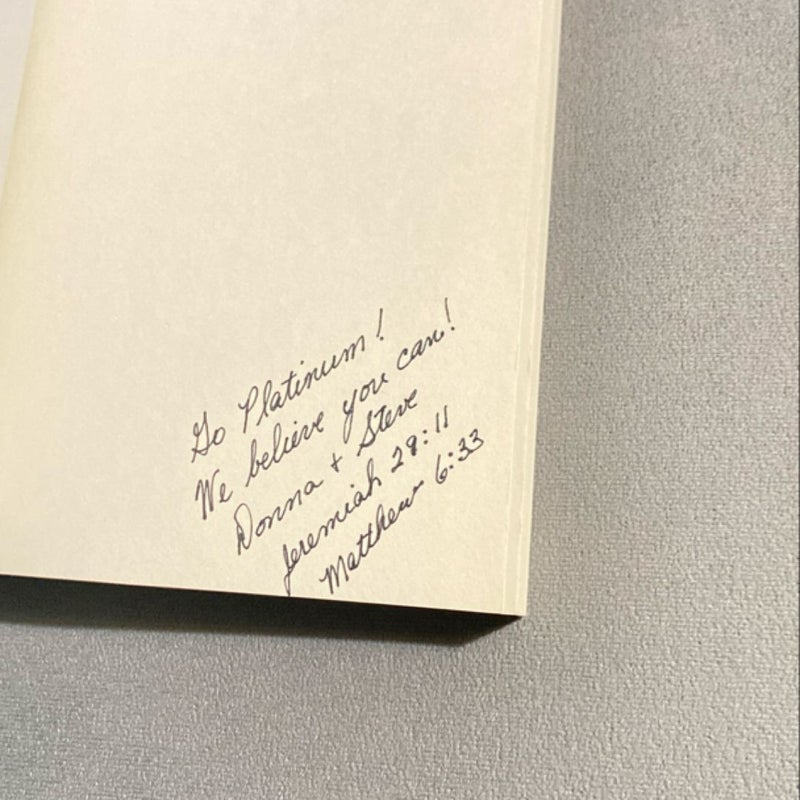 Go Platinum!
We believe you can!
Donna + Steve
Jeremiah 29:11
Matthew 6:33